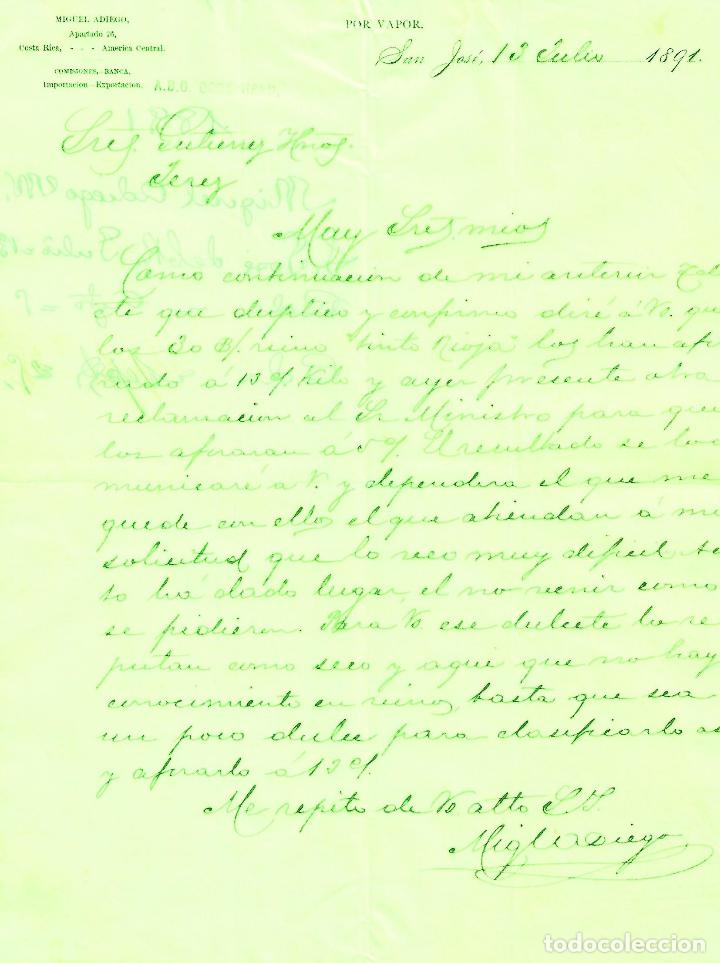 MIGUEL ADIEGO,
Apartado 26,
Costa Rica, - - - America Central.
COMISIONES, BANCA,
Importacion—Exportacion.
POR VAPOR.
San José, 13 Julio 1891.
Sres. Gutierrez Hnos.
Jerez
Muy Sres. mios
Como continuacion de mi anterior
que duplico y confirmo diré á V. que
los 20 B/. vino "tinto Rioja" los han afo
rado á 13 c/. Kilo y ayer presente otra
reclamacion al Sr Ministro para que
los aforaran á 5 c/. El resultado se lo co
municaré a V. y dependera el que me
quede con ellos el que atiendan á mi
solicitud que lo veo muy dificil
to ha dado lugar, el no venir como
se pidieron. Para V. ese dulcete lo re
putan como seco y aqui que no hay
conocimiento en vinos, basta que sea
un poco dulce para clasificarlo asi
y aforarlo á 13 c/.
Me repito de V. atto S.S.
Migl Adiego
todocoleccion